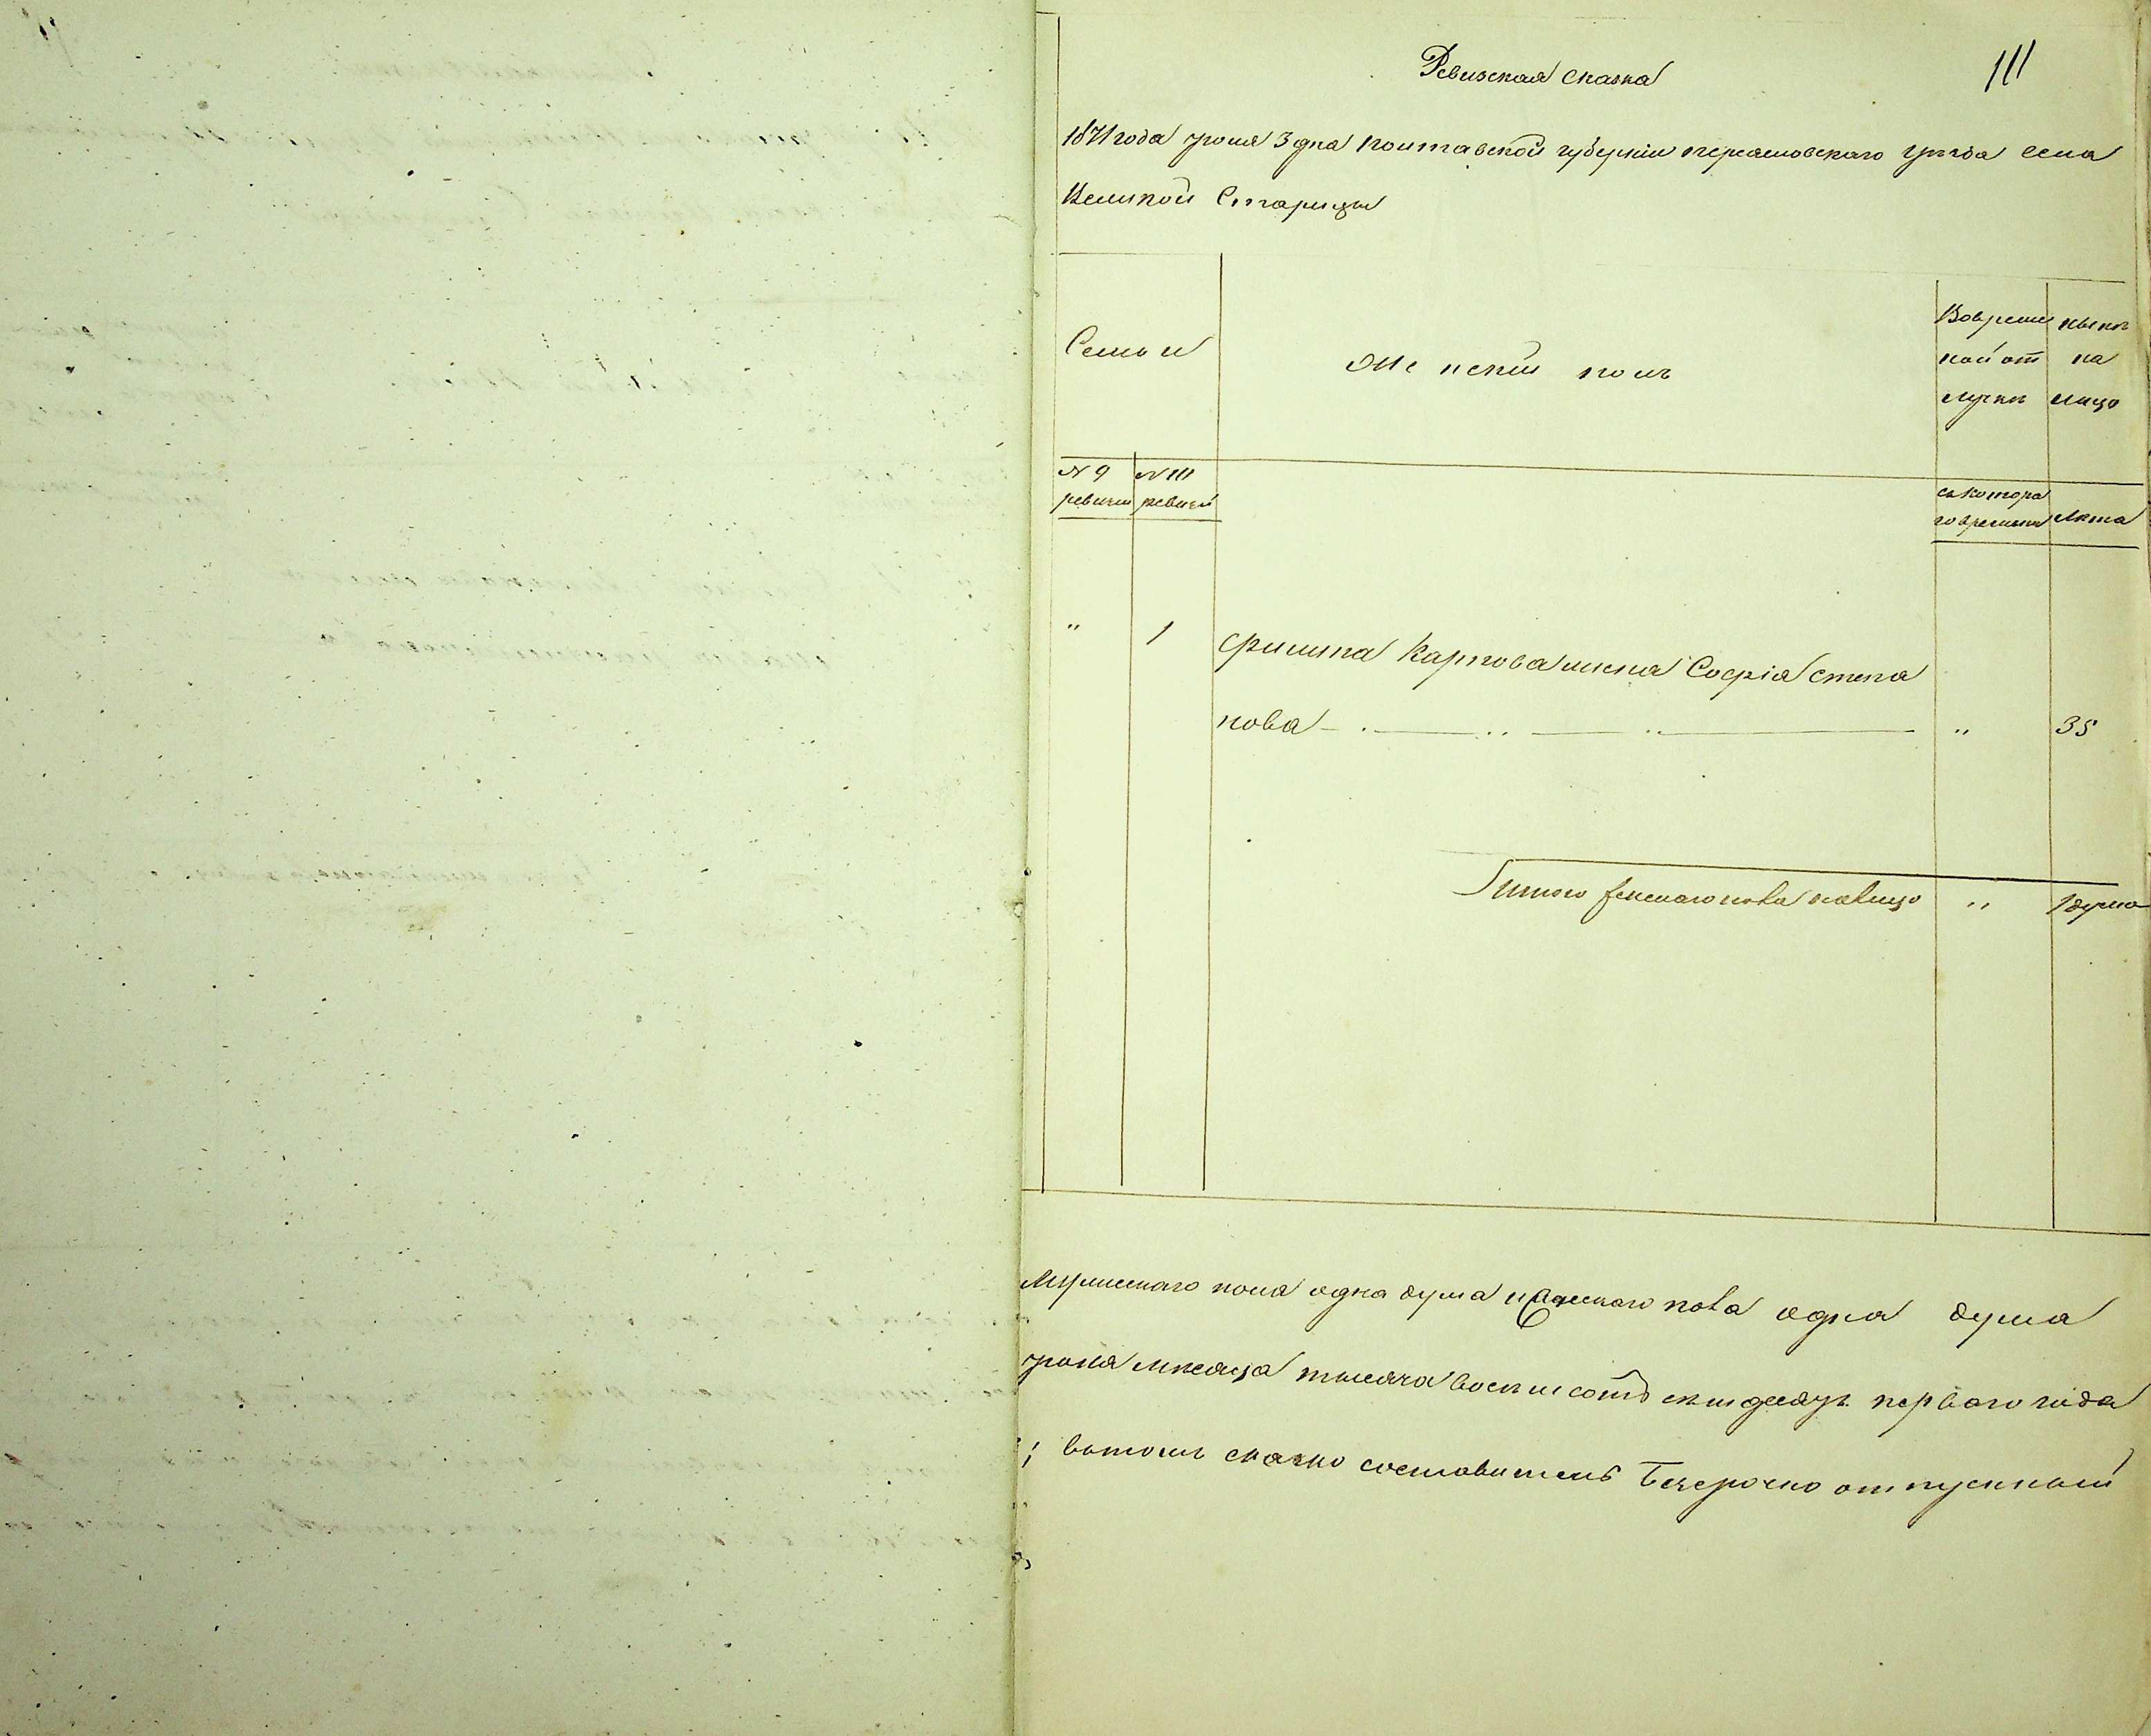 Ревизская сказка
111
1871 года Iюня 3 дня Полтавской губернiи переяславскаго уезда села
Великой Старицы
Семьи
Женскiй полъ
Вовремен
ной от
лучке
ныне
на
лицо
N 9
ревизiи
N 10
ревизiи
съ котора
го времени
Лета
"
1
Филипа Карпова жена Софiя степа
нова
"
35
Итого женскаго пола налицо
"
1 душа
Мужескаго пола одна душа и женскаго пола одна душа
Iюня месяца тысяча восемсотъ семдесятъ перваго года
; ватомъ сказко составителъ Безсрочно отпускный